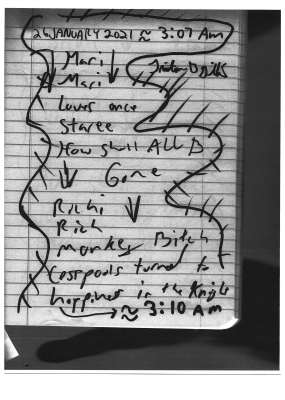 26 JANUARY 2021 ≈ 3:07 Am
Mari
Mari
Lover once
Staree
How shall All B
Gone
Richi
Rich
Monkey Bitch
Cesspools turned to
happines in the Knight
≈ 3:10 Am